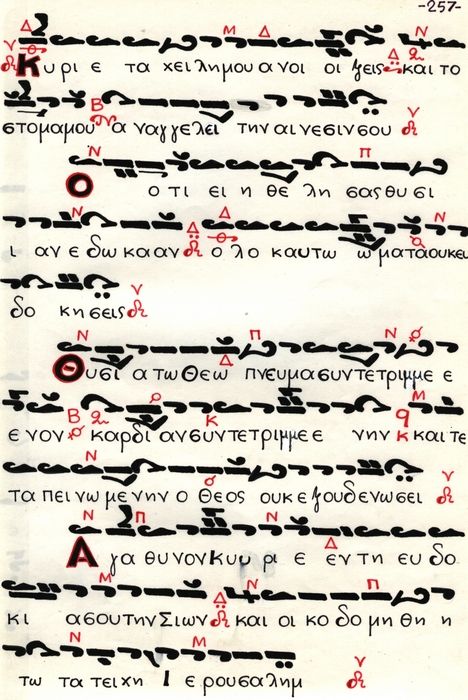 -257-
Κυ ρι ε τα χει λη μου α νοι οι ξεις και το
στο μα μου α ναγ γε λει την αι νε σιν σου
Ο ο τι ει η θε λη σας θυ σι
ι αν ε δω κα αν ο λο καυ τω ω μα τα ου κ ευ
δο κη σεις
Θυ σι α τω Θε ω πνευ μα συν τε τριμ με ε
ε νον καρ δι αν συν τε τριμ με ε νην και τε
τα πει νω με νην ο Θε ος ουκ ε ξου δε νω σει
Α γα θυ νον Κυ υ ρι ε εν τη ευ δο
κι α σου την Σι ων και οι κο δο μη θη η
τω τα τει χη Ι ε ρου σα λημ